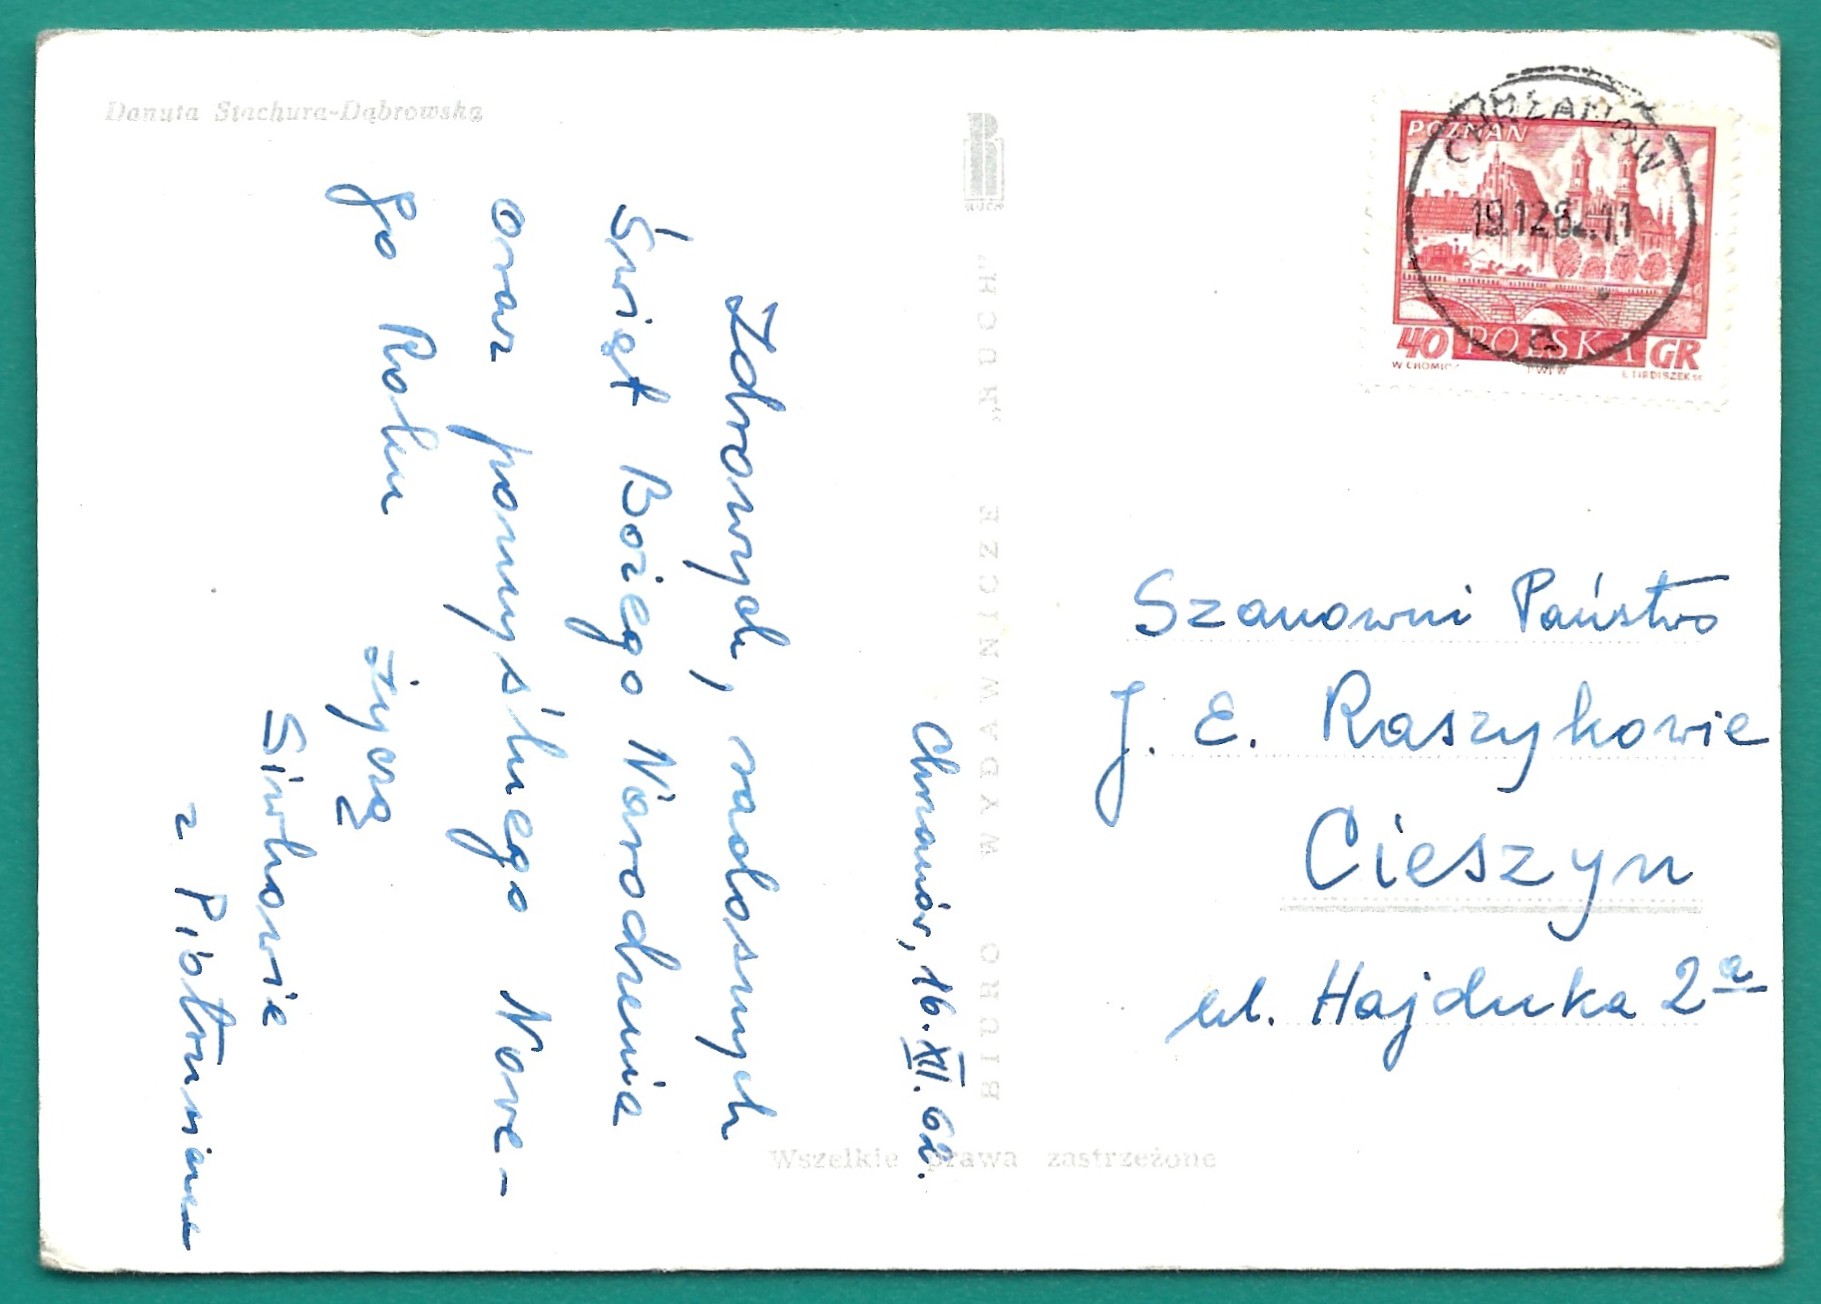 Danuta Stachura-Dąbrowska
Chrzanów, 16.XII.62.
Zdrowych, radosnych
Świąt Bożego Narodzenia
oraz pomyślnego Nowe-
go Roku
życzą
Siwkowie
z Piotrusiem
RUCH
BIURO WYDAWNICZE „RUCH”
Wszelkie prawa zastrzeżone
CHRZANÓW
19.12.62.-11
a
POZNAŃ
40 POLSKA GR
PWPW
Szanowni Państwo
J. E. Raszykowie
Cieszyn
ul. Hajduka 2a